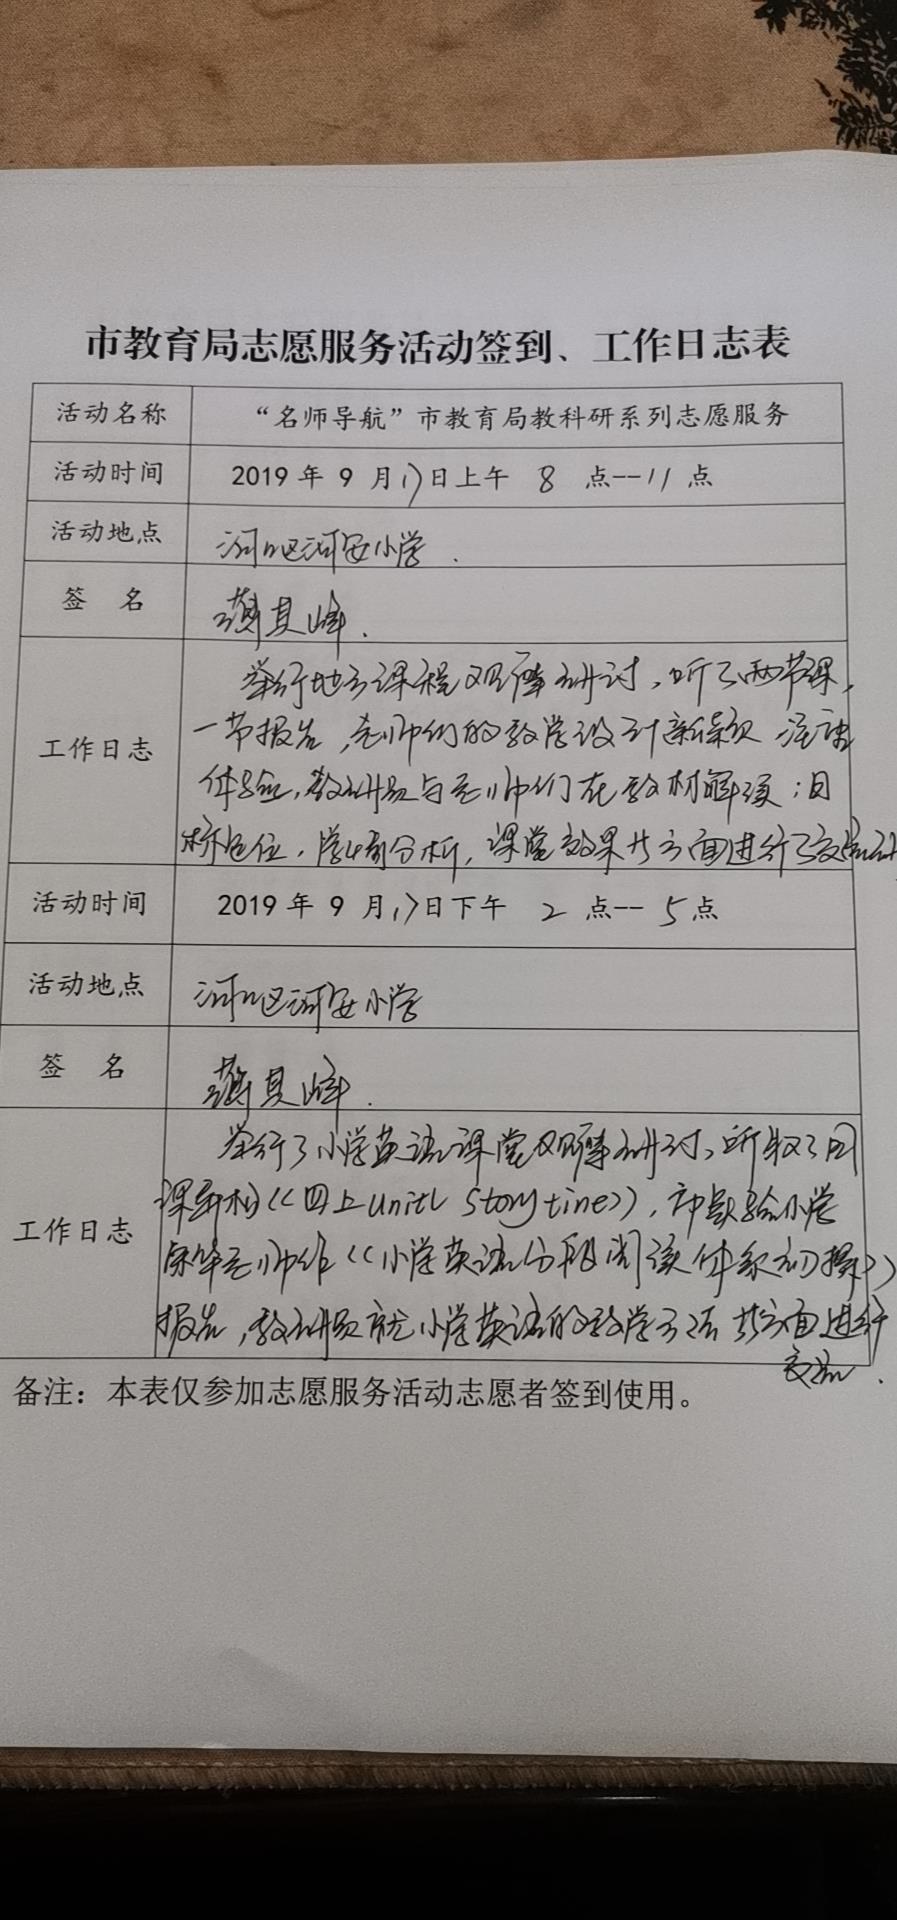 市教育局志愿服务活动签到、工作日志表
活动名称 “名师导航”市教育局教科研系列志愿服务
活动时间 2019 年 9 月17日上午 8 点--11 点
活动地点 河口区河安小学.
签 名 其峰.
工作日志 举行地方课程观摩研讨,听了两节课,
一节报告,老师们的教学设计新颖 注重
体验,教研员与老师们在教材解读;目
标定位,学情分析,课堂效果等方面进行了交流
活动时间 2019 年 9 月17日下午 2 点--5点
活动地点 河口区河安小学
签 名 其峰.
工作日志 举行了小学英语课堂观摩研讨,听取了同
课异构《四上unit1 Story time》,市实验小学
老师作《小学英语分段阅读体系初探》
报告,教研员就小学英语的教学方法等方面进行
交流.
备注：本表仅参加志愿服务活动志愿者签到使用。